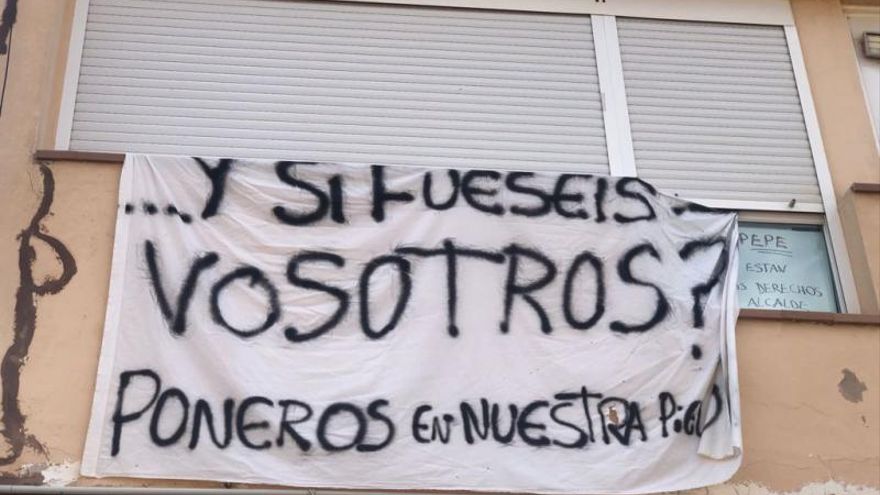 ...Y SI FUESEIS
VOSOTROS?
PONEROS EN NUESTRA PIEL
PEPE
ESTAN
DERECHOS
ALCALDE